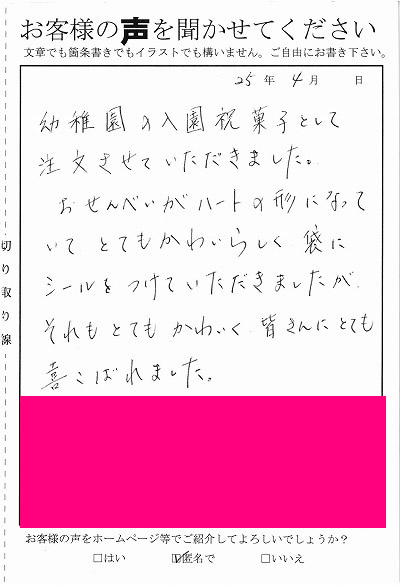 お客様の声を聞かせてください
文章でも箇条書きでもイラストでも構いません。ご自由にお書き下さい。
25年 4月 日
幼稚園の入園祝菓子として
注文させていただきました。
おせんべいがハートの形になって
いて とてもかわいらしく 袋に
シールをつけていただきましたが、
それもとても かわいく 皆さんにとても
喜こばれました。
切り取り線
お客様の声をホームページ等でご紹介してよろしいでしょうか?
□はい ☑匿名で □いいえ